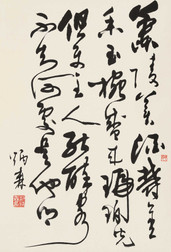 蘭陵美酒鬱金
香玉椀盛来琥珀光
但使主人能醉客
不知何處是他鄉
炳森